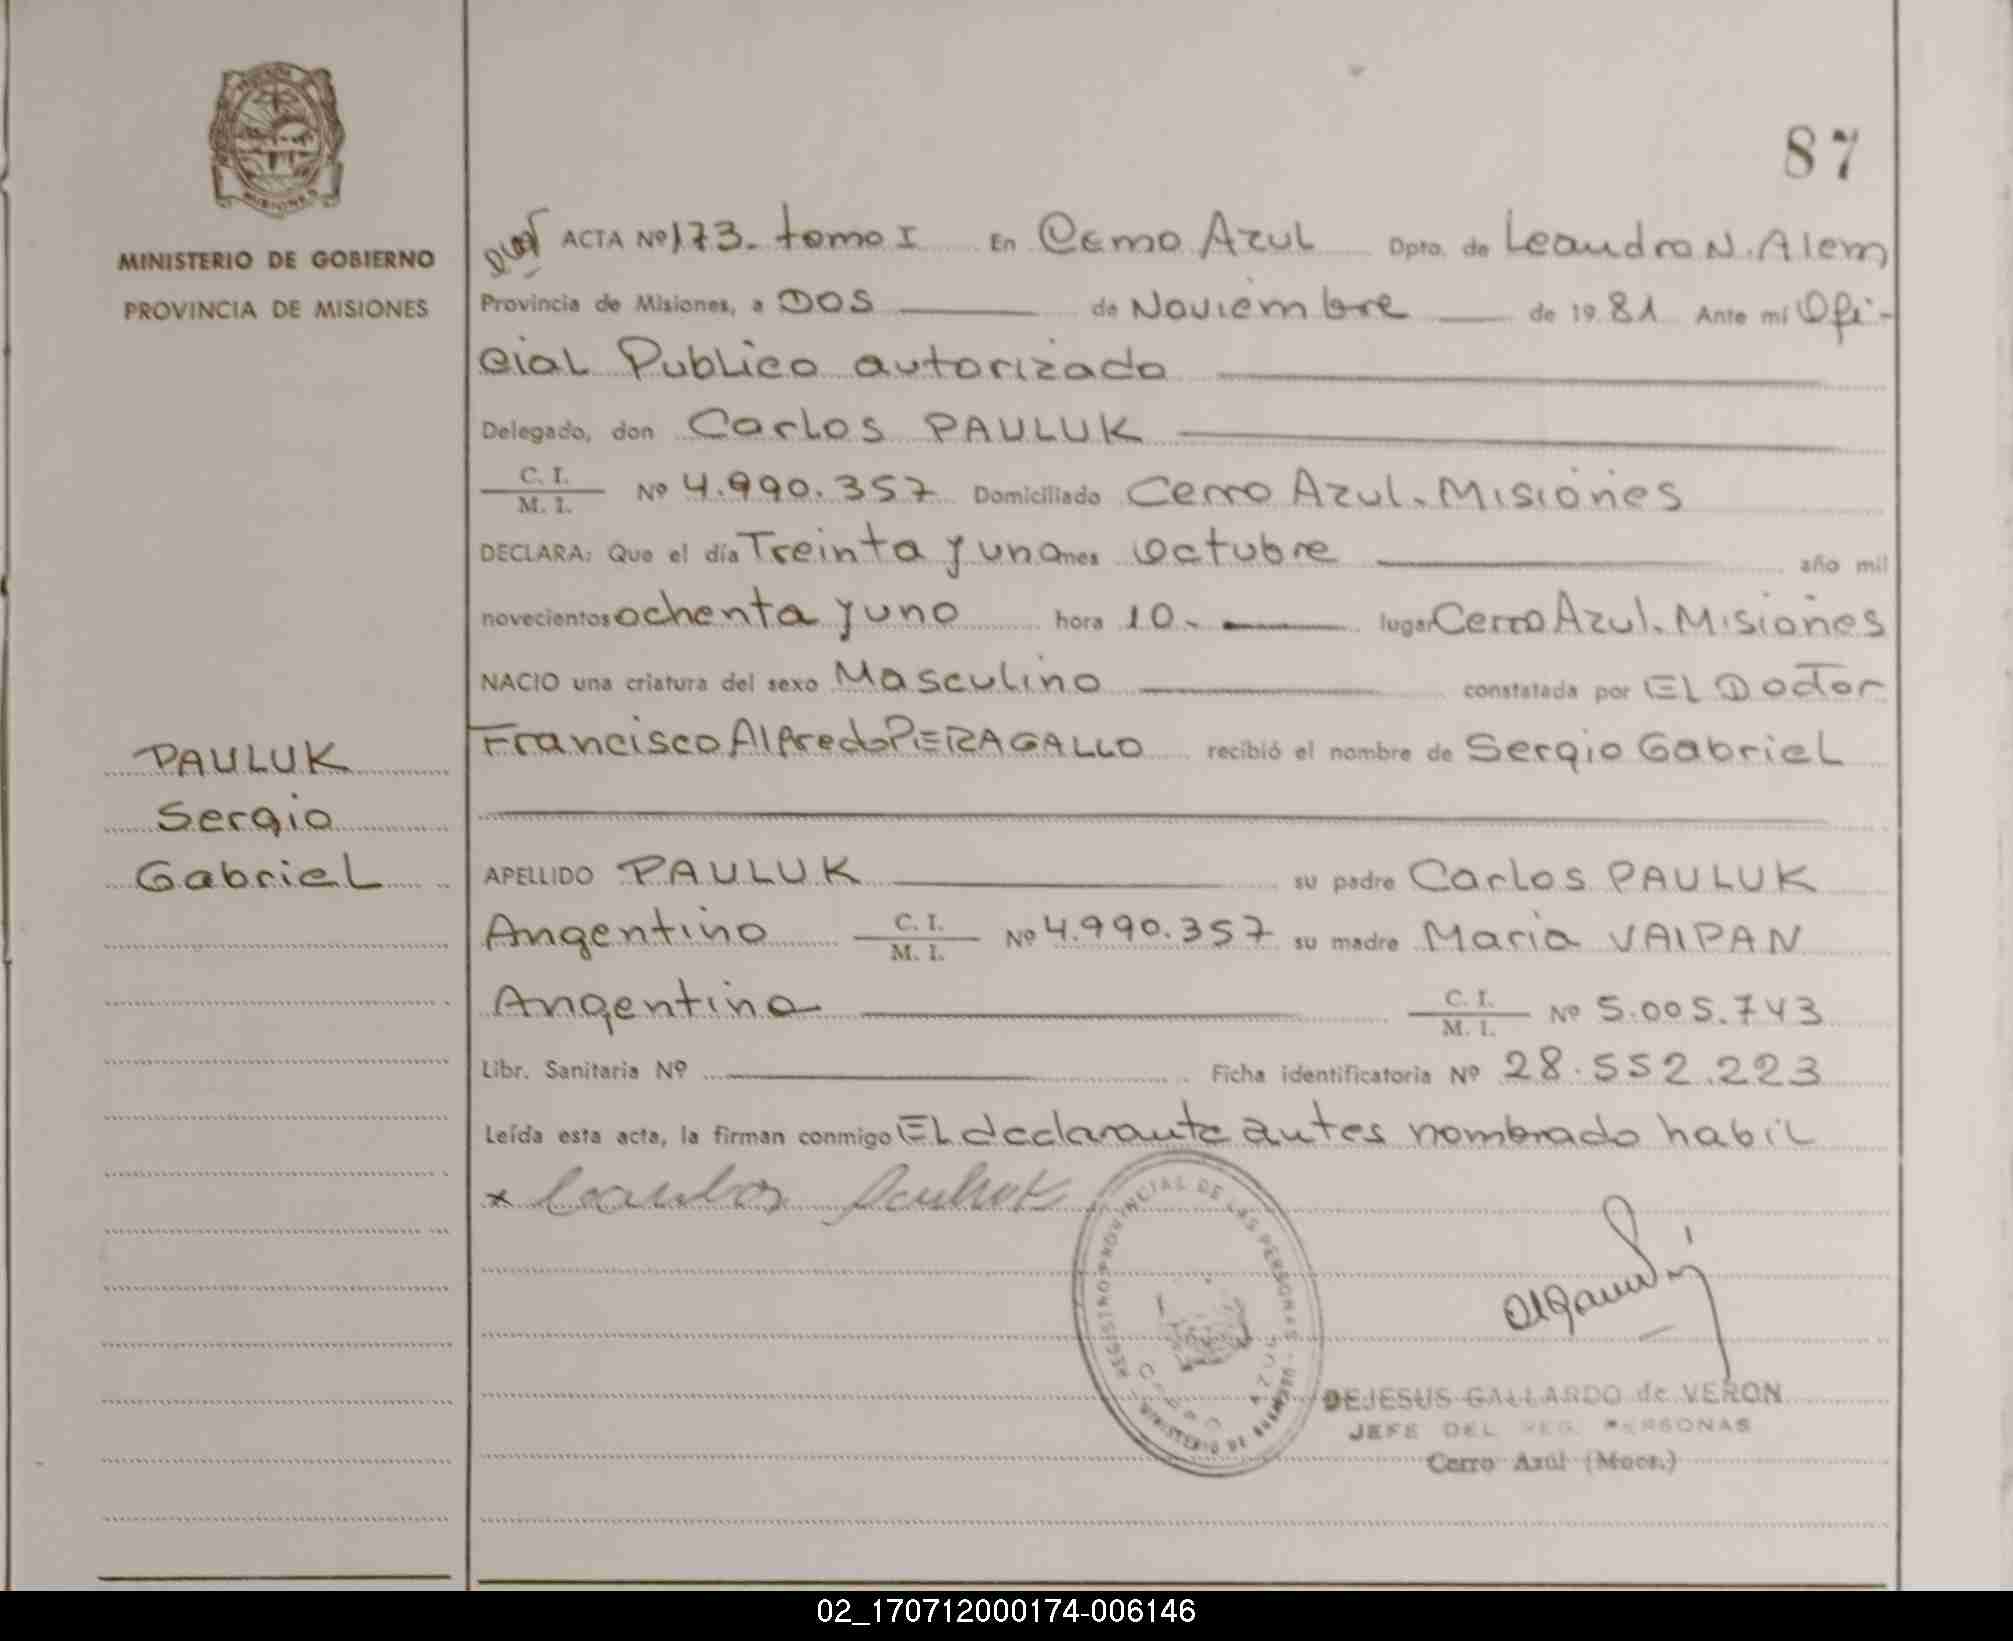 87
MINISTERIO DE GOBIERNO
PROVINCIA DE MISIONES
ACTA Nº 173. tomo I En Cerro Azul Dpto. de Leandro N. Alem
Provincia de Misiones, a DOS de Noviembre de 19 81 Ante mí Ofi-
cial Publico autorizado
Delegado, don Carlos PAULUK
C. I.
M. I. Nº 4.990.357 Domiciliado Cerro Azul. Misiones
DECLARA: Que el día Treinta y uno mes octubre año mil
novecientos ochenta y uno hora 10.- lugar Cerro Azul. Misiones
NACIO una criatura del sexo Masculino constatada por EL Doctor
Francisco Alfredo PERAGALLO recibió el nombre de Sergio Gabriel
PAULUK
Sergio
Gabriel
APELLIDO PAULUK su padre Carlos PAULUK
Argentino C. I.
M. I. Nº 4.990.357 su madre Maria VAIPAN
Argentina C. I.
M. I. Nº 5.005.743
Libr. Sanitaria Nº Ficha identificatoria Nº 28.552.223
Leída esta acta, la firman conmigo EL declarante antes nombrado habil
REGISTRO PROVINCIAL DE LAS PERSONAS
MINISTERIO DE
DEJESUS GALLARDO de VERON
JEFE DEL REG. PERSONAS
Cerro Azúl (Mnes.)
02_170712000174-006146